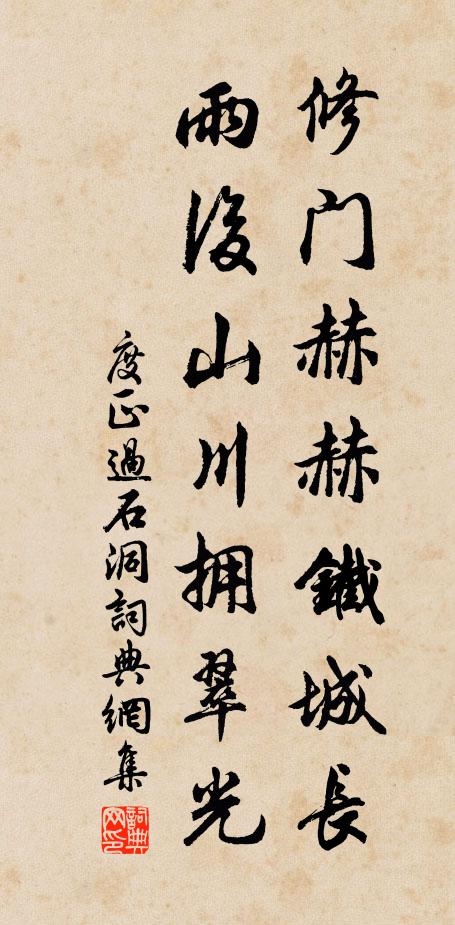 修门赫赫鐵城長
雨後山川拥翠光
度正過石洞詞典網集
詞典网印